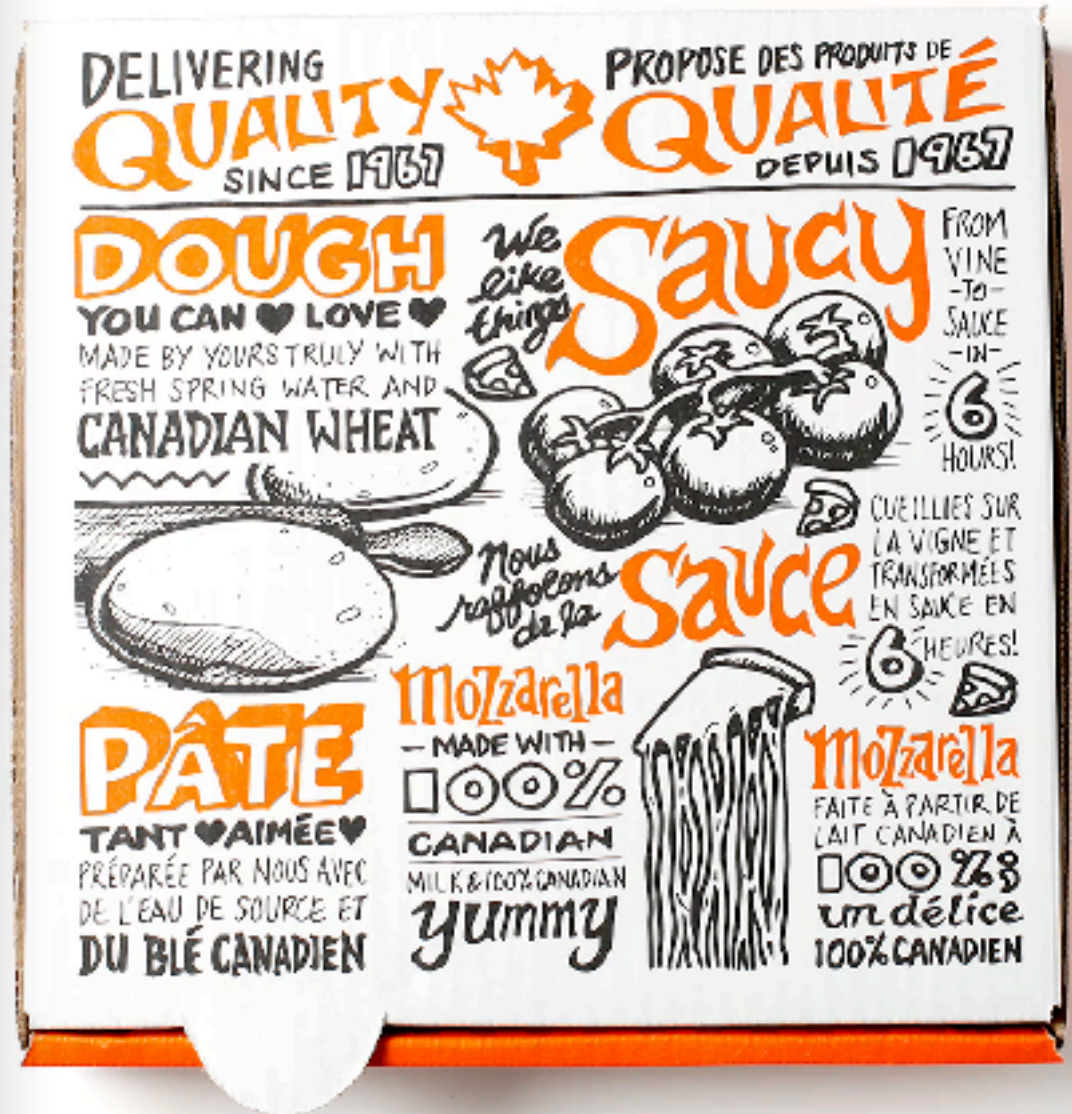 DELIVERING
QUALITY
SINCE 1967
PROPOSE DES PRODUITS DE
QUALITÉ
DEPUIS 1967
DOUGH
YOU CAN LOVE
MADE BY YOURS TRULY WITH
FRESH SPRING WATER AND
CANADIAN WHEAT
We
like
things
Saucy
FROM
VINE
-TO-
SAUCE
-IN-
6
HOURS!
Nous
raffolons
de la
Sauce
CUEILLIES SUR
LA VIGNE ET
TRANSFORMÉES
EN SAUCE EN
6 HEURES!
PÂTE
TANT AIMÉE
PRÉPARÉE PAR NOUS AVEC
DE L'EAU DE SOURCE ET
DU BLÉ CANADIEN
Mozzarella
- MADE WITH -
100%
CANADIAN
MILK & 100% CANADIAN
yummy
Mozzarella
FAITE À PARTIR DE
LAIT CANADIEN À
100 % &
un délice
100% CANADIEN